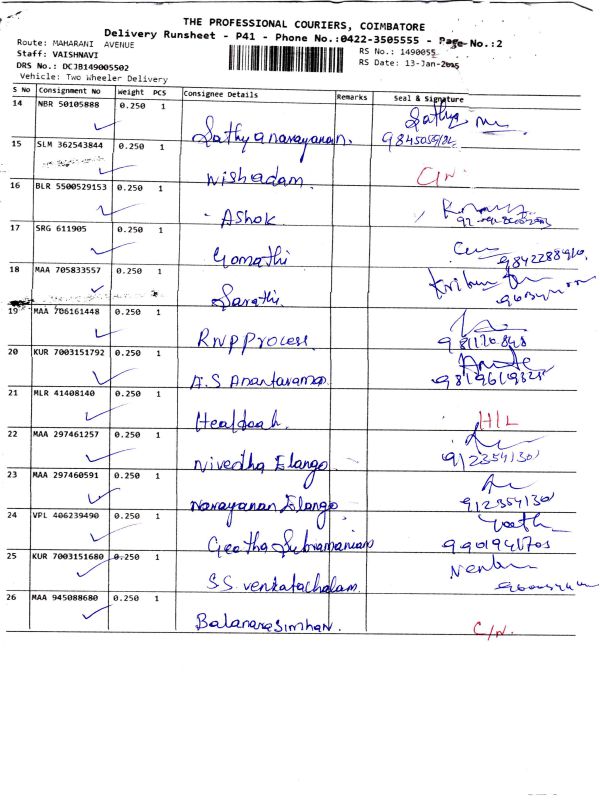 THE PROFESSIONAL COURIERS, COIMBATORE
Delivery Runsheet - P41 - Phone No.:0422-3505555 - Page No.:2
Route: MAHARANI AVENUE
RS No.: 1490055
Staff: VAISHNAVI
RS Date: 13-Jan-
DRS No.: DCJB149005502
Vehicle: Two Wheeler Delivery
S No Consignment No Weight PCS Consignee Details Remarks Seal & Signature
14 NBR 50105888 0.250 1 Sathyanarayanan. Sathya
15 SLM 362543844 0.250 1 Nishadam. C/N.
16 BLR 5500529153 0.250 1 Ashok
17 SRG 611905 0.250 1 Gomathi
18 MAA 705833557 0.250 1 Sarathi.
19 MAA 706161448 0.250 1 RNP Process.
20 KUR 7003151792 0.250 1 A.S Anantaraman
21 MLR 41408140 0.250 1 H/L
22 MAA 297461257 0.250 1 Nivedha Elango 9123541301
23 MAA 297460591 0.250 1 Narayanan Elango 9123541301
24 VPL 406239490 0.250 1 Geetha Subramaniam
25 KUR 7003151680 0.250 1 S.S. Venkatachalam.
26 MAA 945088680 0.250 1 Balanarasimhan. C/N.